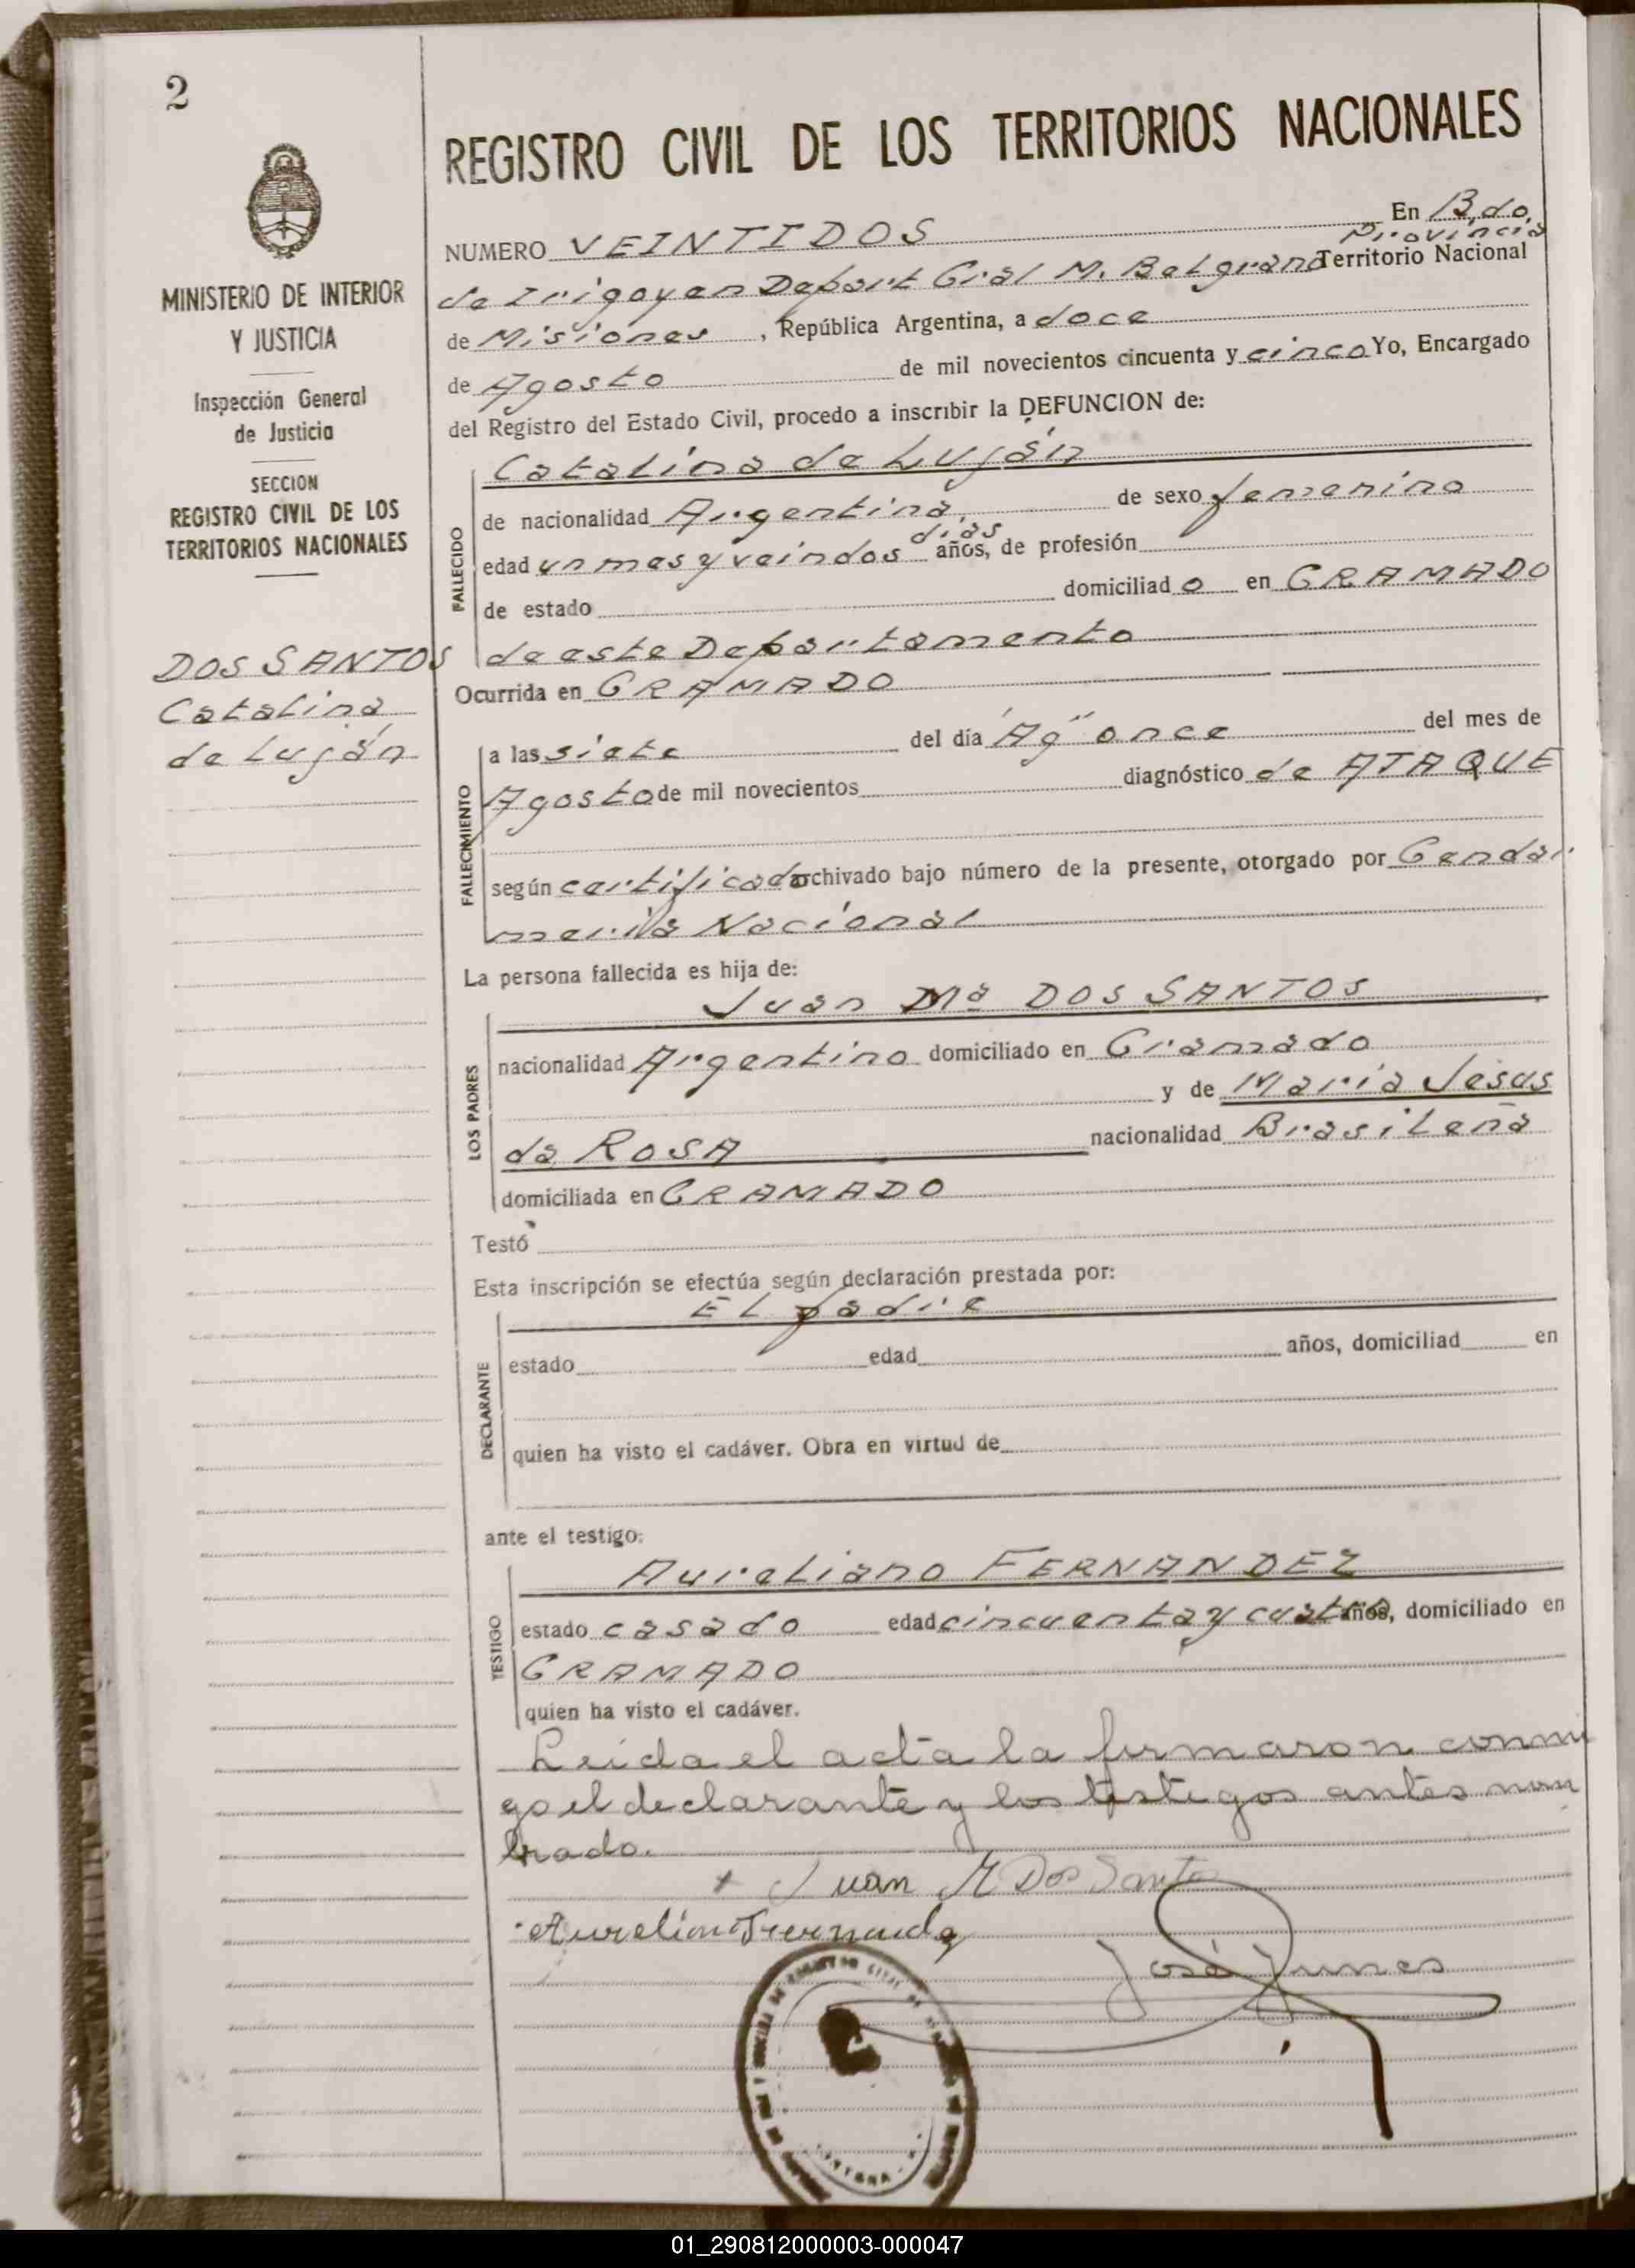 2
MINISTERIO DE INTERIOR
Y JUSTICIA
Inspección General
de Justicia
SECCION
REGISTRO CIVIL DE LOS
TERRITORIOS NACIONALES
DOS SANTOS
Catalina
de Luján
REGISTRO CIVIL DE LOS TERRITORIOS NACIONALES
NUMERO VEINTIDOS En B.do.
Provincia
de Irigoyen Depart Gral M. Belgrano Territorio Nacional
de Misiones, República Argentina, a doce
de Agosto de mil novecientos cincuenta y cinco Yo, Encargado
del Registro del Estado Civil, procedo a inscribir la DEFUNCION de:
Catalina de Luján
FALLECIDO
de nacionalidad Argentina de sexo femenino
días
edad un mes y veindos años, de profesión
de estado domiciliado en GRAMADO
de este Departamento
Ocurrida en GRAMADO
FALLECIMIENTO
a las siete del día "Ag" once del mes de
Agosto de mil novecientos diagnóstico de ATAQUE
según certificado archivado bajo número de la presente, otorgado por Gendar
mería Nacional
La persona fallecida es hija de:
Juan Mª DOS SANTOS
LOS PADRES
nacionalidad Argentino domiciliado en Gramado
y de María Jesus
da ROSA nacionalidad Brasileña
domiciliada en GRAMADO
Testó
Esta inscripción se efectúa según declaración prestada por:
EL padre
DECLARANTE
estado edad años, domiciliad en
quien ha visto el cadáver. Obra en virtud de
ante el testigo:
Aureliano FERNANDEZ
TESTIGO
estado casado edad cincuenta y cuatro años, domiciliado en
GRAMADO
quien ha visto el cadáver.
Leida el acta la firmaron conmi
go el declarante y los testigos antes nom
brado.
+ Juan M Dos Santos
José
01_290812000003-000047